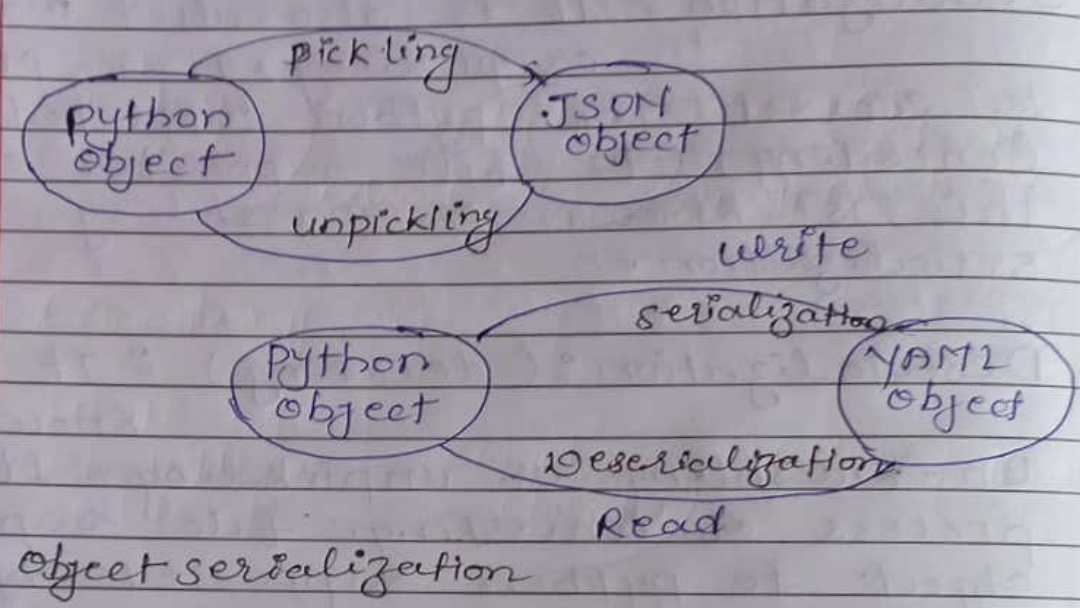 pickling
Python
object
JSON
object
unpickling
write
serialization
Python
object
YAML
object
Deserialization
Read
Object serialization